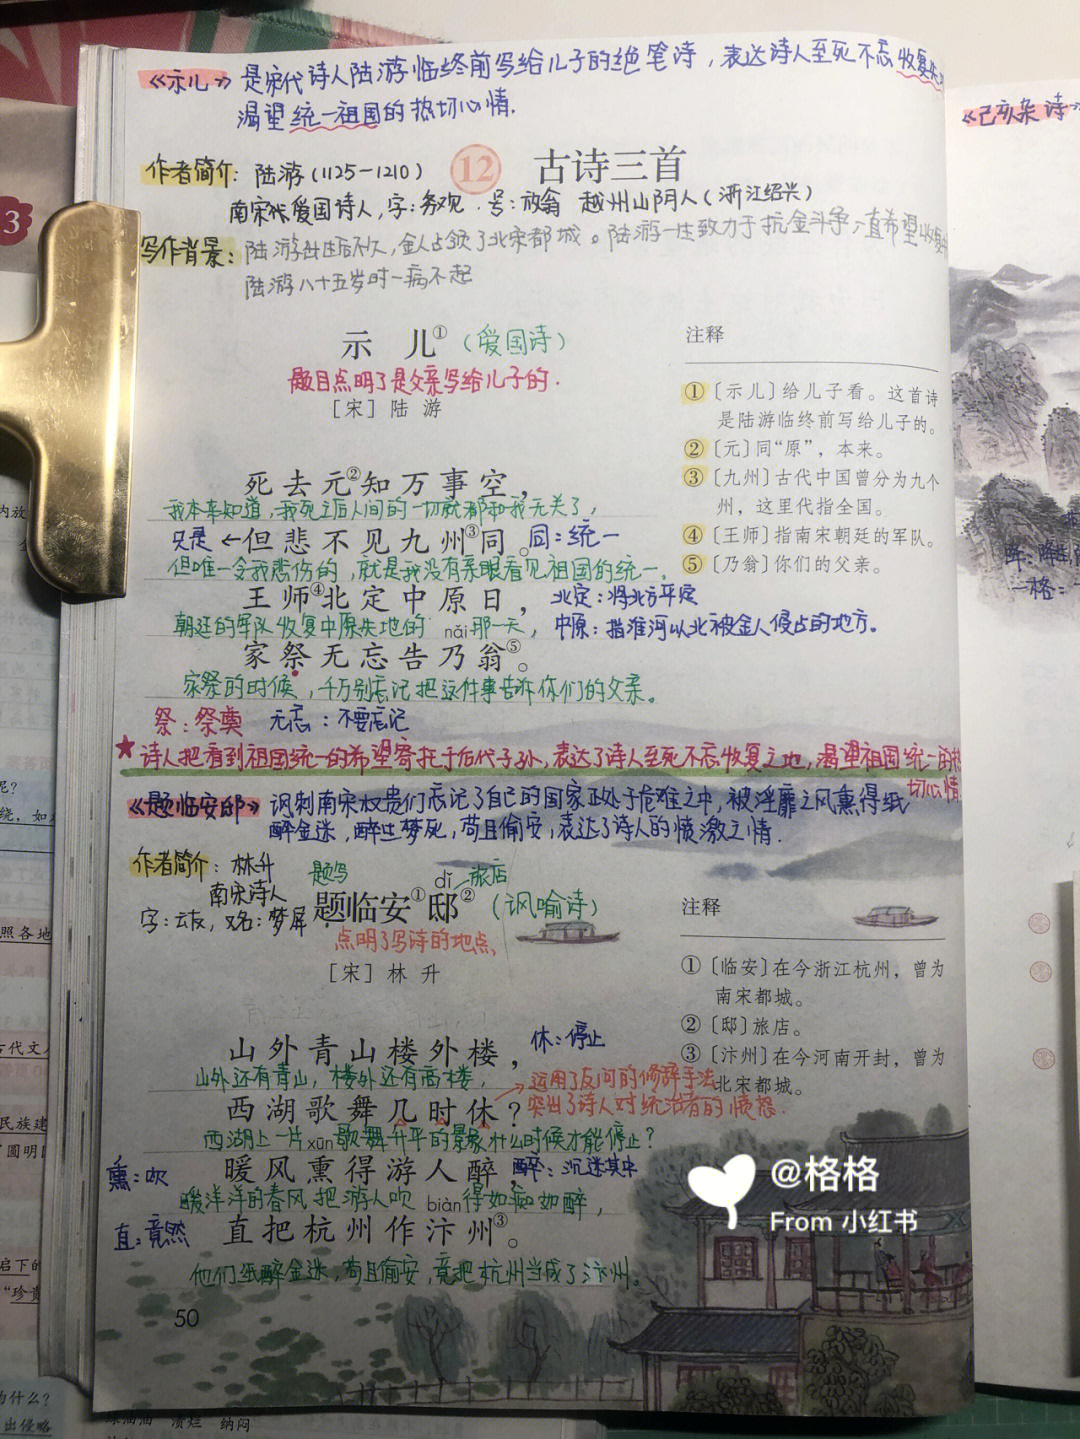 《示儿》是宋代诗人陆游临终前写给儿子的绝笔诗，表达诗人至死不忘收复失
渴望统一祖国的热切心情.
《己亥杂诗》
作者简介: 陆游(1125-1210)
12 古诗三首
南宋代爱国诗人,字:务观.号:放翁 越州山阴人(浙江绍兴)
写作背景: 陆游出生后不久,金人占领了北宋都城。陆游一生致力于抗金斗争,一直希望收复
陆游八十五岁时一病不起
示 儿① (爱国诗)
题目点明了是父亲写给儿子的.
[宋] 陆 游
死去元②知万事空,
我本来知道,我死之后人间的一切就都和我无关了,
只是←但悲不见九州③同。同:统一
但唯一令我悲伤的,就是我没有亲眼看见祖国的统一。
王师④北定中原日, 北定:将北方平定
朝廷的军队收复中原失地的 nǎi 那一天, 中原:指淮河以北被金人侵占的地方。
家祭无忘告乃翁⑤。
家祭的时候,千万别忘记把这件事告诉你们的父亲。
祭:祭奠 无忘:不要忘记
注释
①〔示儿〕给儿子看。这首诗
是陆游临终前写给儿子的。
②〔元〕同“原”，本来。
③〔九州〕古代中国曾分为九个
州，这里代指全国。
④〔王师〕指南宋朝廷的军队。
⑤〔乃翁〕你们的父亲。
★诗人把看到祖国统一的希望寄托于后代子孙,表达了诗人至死不忘收复之地,渴望祖国统一的热
切心情
《题临安邸》 讽刺南宋权贵们忘记了自己的国家正处于危难之中,被淫靡之风熏得纸
醉金迷,醉生梦死,苟且偷安,表达了诗人的愤激之情.
作者简介: 林升
南宋诗人
字:云友,又名:梦屏
题写 dǐ 旅店
题临安①邸② (讽喻诗)
点明了写诗的地点,
[宋] 林 升
山外青山楼外楼, 休:停止
山外还有青山,楼外还有高楼,
西湖歌舞几时休? 运用了反问的修辞手法
突出了诗人对统治者的愤怒.
西湖上一片xūn歌舞升平的景象什么时候才能停止?
熏:吹 暖风熏得游人醉, 醉:沉迷其中
暖洋洋的春风把游人吹 biàn得如痴如醉,
直:竟然 直把杭州作汴州③。
他们纸醉金迷,苟且偷安,竟把杭州当成了汴州。
注释
①〔临安〕在今浙江杭州，曾为
南宋都城。
②〔邸〕旅店。
③〔汴州〕在今河南开封，曾为
北宋都城。
50
@格格
From 小红书
3
内放
呢?
绕，如
照各地
古代文
民族建
“圆明
启下的
“珍贵
为什么?
出侵略
溃烂 纳闷
一格: